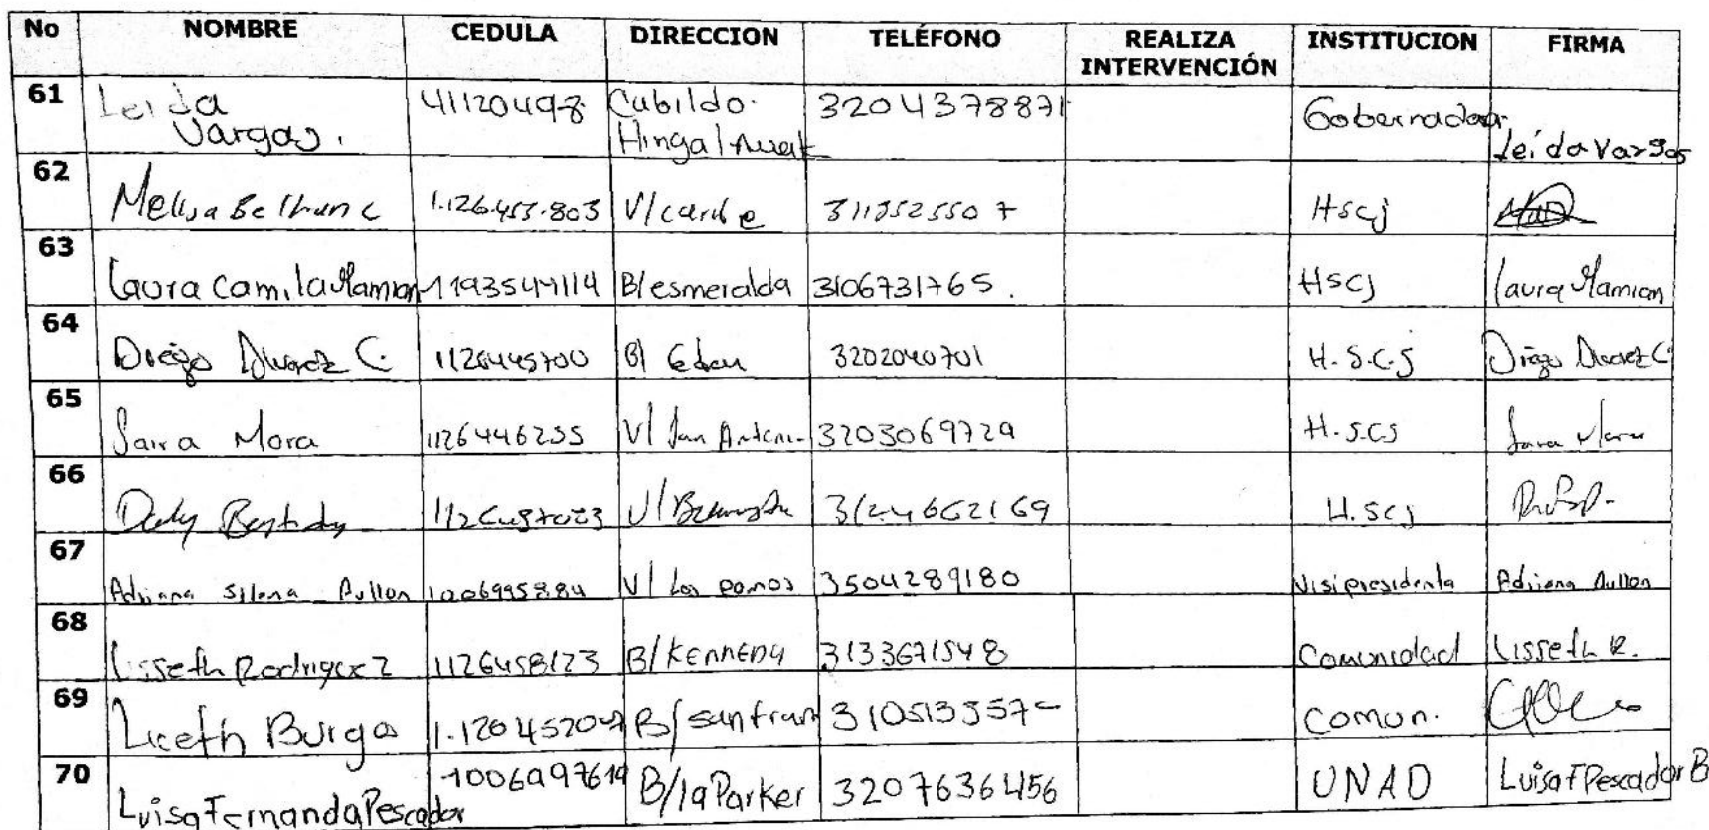 No NOMBRE CEDULA DIRECCION TELÉFONO REALIZA INTERVENCIÓN INSTITUCION FIRMA
61 Leida Vargas. 41120498 Cabildo Hingal 3204378871 Gobernadora Leida Vargas
62 Melisa 1.126.453.803 V/caribe 3113525507 Hscj
63 Laura Camila Mamian 1193544114 B/esmeralda 3106731765. HSCJ Laura Mamian
64 Diego Alvarez C. 1126445700 B/ Eden 3202040701 H.S.C.J Diego Alvarez C
65 Saira Mora 1126446255 V/ San Antonio 3203069729 H.S.CJ Mora
66 V/ 3124662169 H.SCJ
67 Adriana Silena Aullon 1006995884 V/ Los pomos 3504289180 Visipresidenta Adriana Aullon
68 Lisseth Rodriguez 1126458123 B/KENNEDY 3133671548 Comunidad Lisseth R.
69 Liceth Burgos B/sanfran comun.
70 Luisa Fernanda Pescador 1006997619 B/la Parker 3207636456 UNAD Luisa F Pescador B